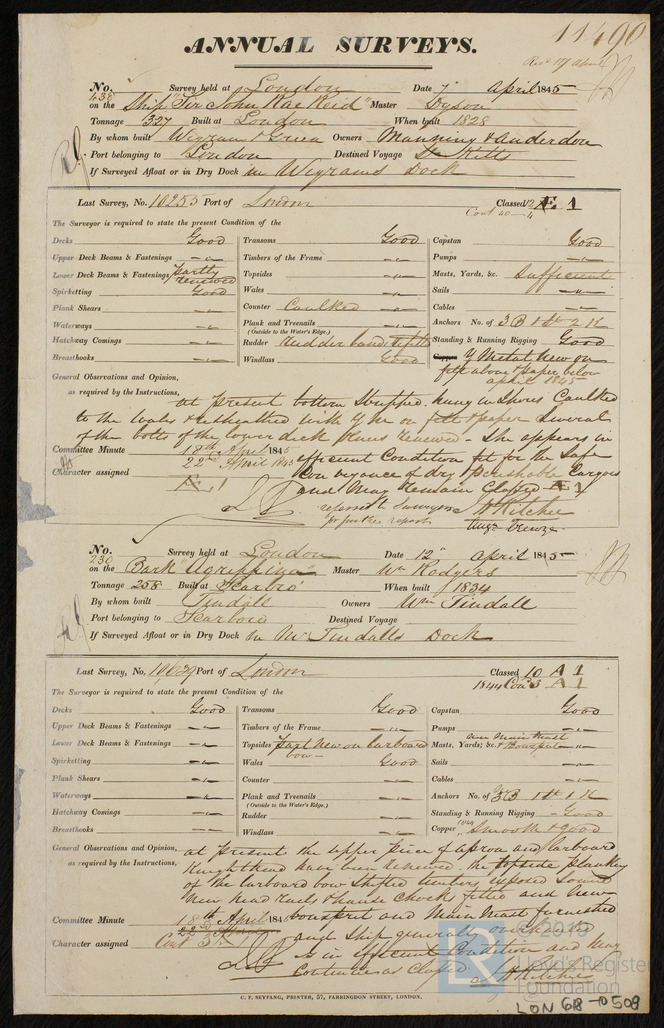 11490
ANNUAL SURVEYS.
No. 438 Survey held at London Date 7 April 1845
on the Ship "Sir John Rae Reid" Master Dyson
Tonnage 327 Built at London When built 1828
By whom built Wigram & Green Owners Manning & Anderdon
Port belonging to London Destined Voyage St Kitts
If Surveyed Afloat or in Dry Dock in Wigrams Dock
Last Survey, No. 10255 Port of London Classed 12 Æ 1
Cont 40
The Surveyor is required to state the present Condition of the
Decks Good Transoms Good Capstan Good
Upper Deck Beams & Fastenings Timbers of the Frame Pumps
Lower Deck Beams & Fastenings partly renewed Topsides Masts, Yards, &c. Sufficient
Spirketting Good Wales Sails
Plank Shears Counter Caulked Cables
Waterways Plank and Treenails Anchors No. of 3 B 1 St 2 K
(Outside to the Water's Edge.)
Hatchway Comings Rudder Rudder bands Standing & Running Rigging Good
Breasthooks Windlass Good Copper Y Metal New on
felt above & paper below
April 1845
General Observations and Opinion,
as required by the Instructions,
At present bottom Stripped, hung in Shores Caulked
to the Wales & resheathed with Y M on felt & paper Several
of the bolts of the lower deck Knees renewed - She appears in
Committee Minute 18th April 1845 efficient Condition fit for the Safe
22nd April 1845 Conveyance of dry & perishable Cargoes
Character assigned Æ 1 and May remain Classed Æ 1
referred to Surveyors
for further report
No. 230 Survey held at London Date 12 April 1845
on the Bark Agrippina Master Wm Rodgers
Tonnage 258 Built at Scarbro' When built 1834
By whom built Tindall Owners Wm Tindall
Port belonging to Scarboro Destined Voyage
If Surveyed Afloat or in Dry Dock In Mr Tindalls Dock
Last Survey, No. 10639 Port of London Classed 10 A 1
1844 Con 3 A 1
The Surveyor is required to state the present Condition of the
Decks Good Transoms Good Capstan Good
Upper Deck Beams & Fastenings Timbers of the Frame Pumps
Lower Deck Beams & Fastenings Topsides part New on larboard bow Masts, Yards, &c. new Main Mast & Bowsprit
Spirketting Wales Good Sails
Plank Shears Counter Cables
Waterways Plank and Treenails Anchors No. of 3 B 1 St 1 K
(Outside to the Water's Edge.)
Hatchway Comings Rudder Standing & Running Rigging Good
Breasthooks Windlass Copper Smooth & good
General Observations and Opinion,
as required by the Instructions,
At present the upper piece of apron and larboard
Knighthead have been renewed. the topside planking
of the larboard bow Shifted timbers exposed Sound
New head rails & hause chocks fitted and New
Committee Minute 18th April 1845 bowsprit and Main Mast furnished
and Ship generally
Character assigned Cont 3 is in efficient Condition and May
Continue as Classed
C. F. SEYFANG, PRINTER, 57, FARRINGDON STREET, LONDON.
LR
© 2019
Lloyd's Register
Foundation
LON 68-0508